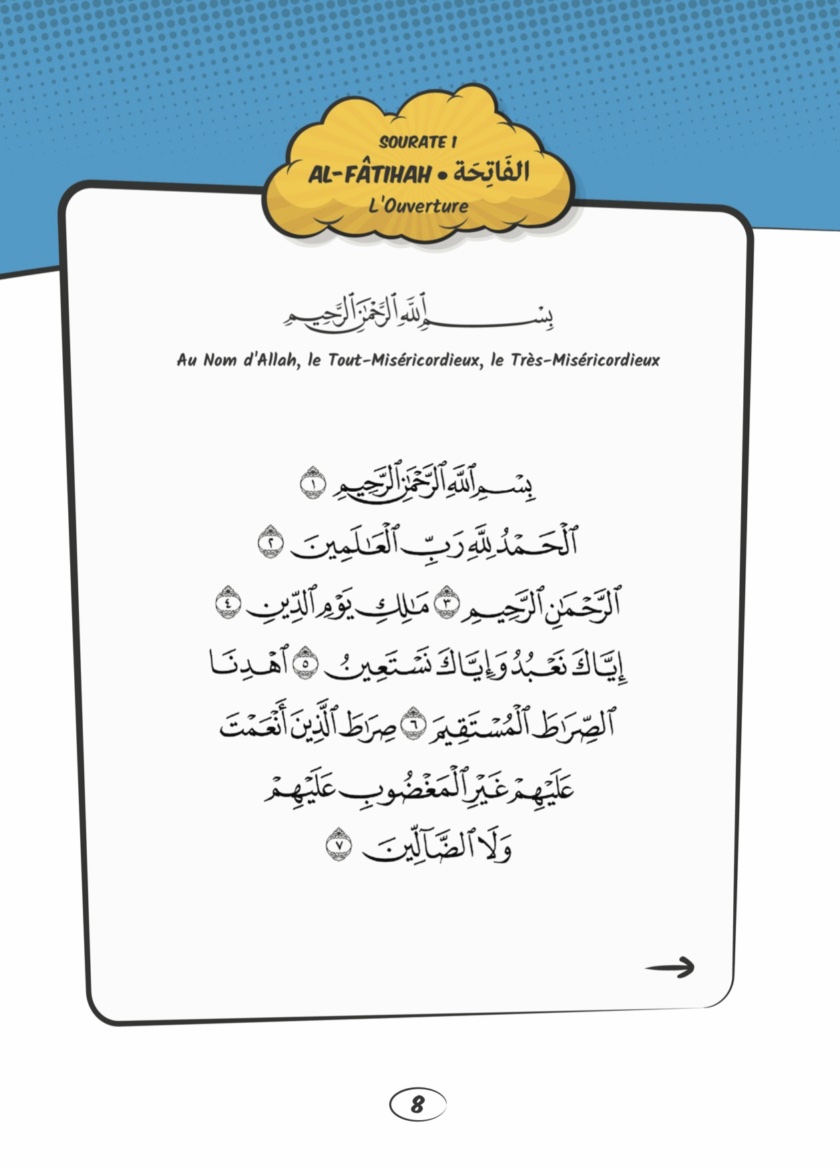 SOURATE 1
AL-FÂTIHAH • الفَاتِحَة
L'Ouverture
بِسْمِ ٱللَّهِ ٱلرَّحْمَٰنِ ٱلرَّحِيمِ
Au Nom d'Allah, le Tout-Miséricordieux, le Très-Miséricordieux
بِسْمِ ٱللَّهِ ٱلرَّحْمَٰنِ ٱلرَّحِيمِ ١
ٱلْحَمْدُ لِلَّهِ رَبِّ ٱلْعَٰلَمِينَ ٢
ٱلرَّحْمَٰنِ ٱلرَّحِيمِ ٣ مَٰلِكِ يَوْمِ ٱلدِّينِ ٤
إِيَّاكَ نَعْبُدُ وَإِيَّاكَ نَسْتَعِينُ ٥ ٱهْدِنَا
ٱلصِّرَٰطَ ٱلْمُسْتَقِيمَ ٦ صِرَٰطَ ٱلَّذِينَ أَنْعَمْتَ
عَلَيْهِمْ غَيْرِ ٱلْمَغْضُوبِ عَلَيْهِمْ
وَلَا ٱلضَّآلِّينَ ٧
8